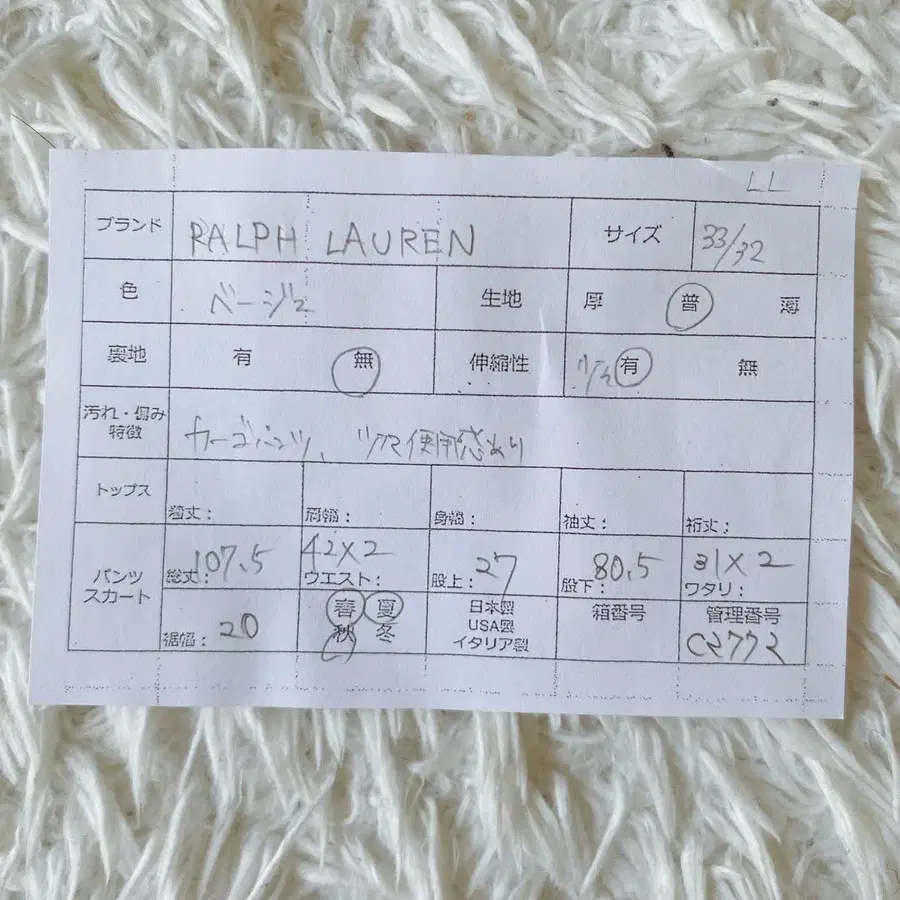 LL
ブランド RALPH LAUREN サイズ 33/32
色 ベージュ 生地 厚 普 薄
裏地 有 無 伸縮性 有 無
汚れ・傷み
特徴 カーゴパンツ、 使用感あり
トップス 着丈: 肩幅: 身幅: 袖丈: 裄丈:
パンツ
スカート
総丈: 107.5 ウエスト: 42×2 股上: 27 股下: 80.5 ワタリ: 31×2
裾幅: 20
春 夏
秋 冬
日本製
USA製
イタリア製
箱番号
管理番号
C2772